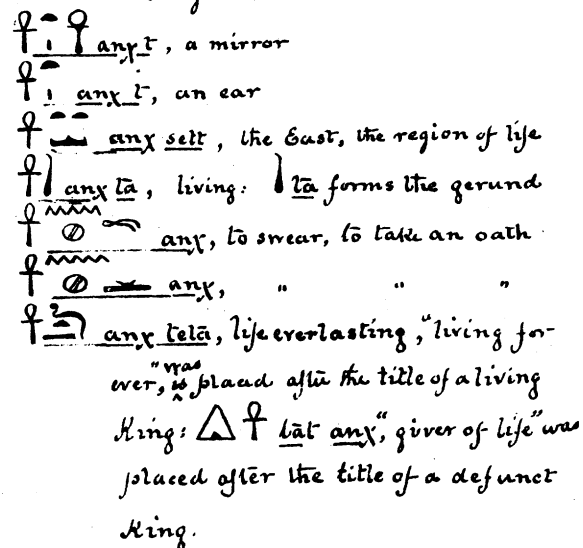 𓋹𓏏𓏤𓋺 anχ t, a mirror
𓋹𓏏𓏤 anχ t, an ear
𓋹 anχ sett, the East, the region of life
𓋹 anχ tā, living: tā forms the gerund
𓋹𓈖𓐍 anχ, to swear, to take an oath
𓋹𓈖𓐍 anχ, " " "
𓋹 anχ tetā, life everlasting, "living for-
ever," was is placed after the title of a living
King: 𓋹 tāt anχ "giver of life" was
placed after the title of a defunct
King.